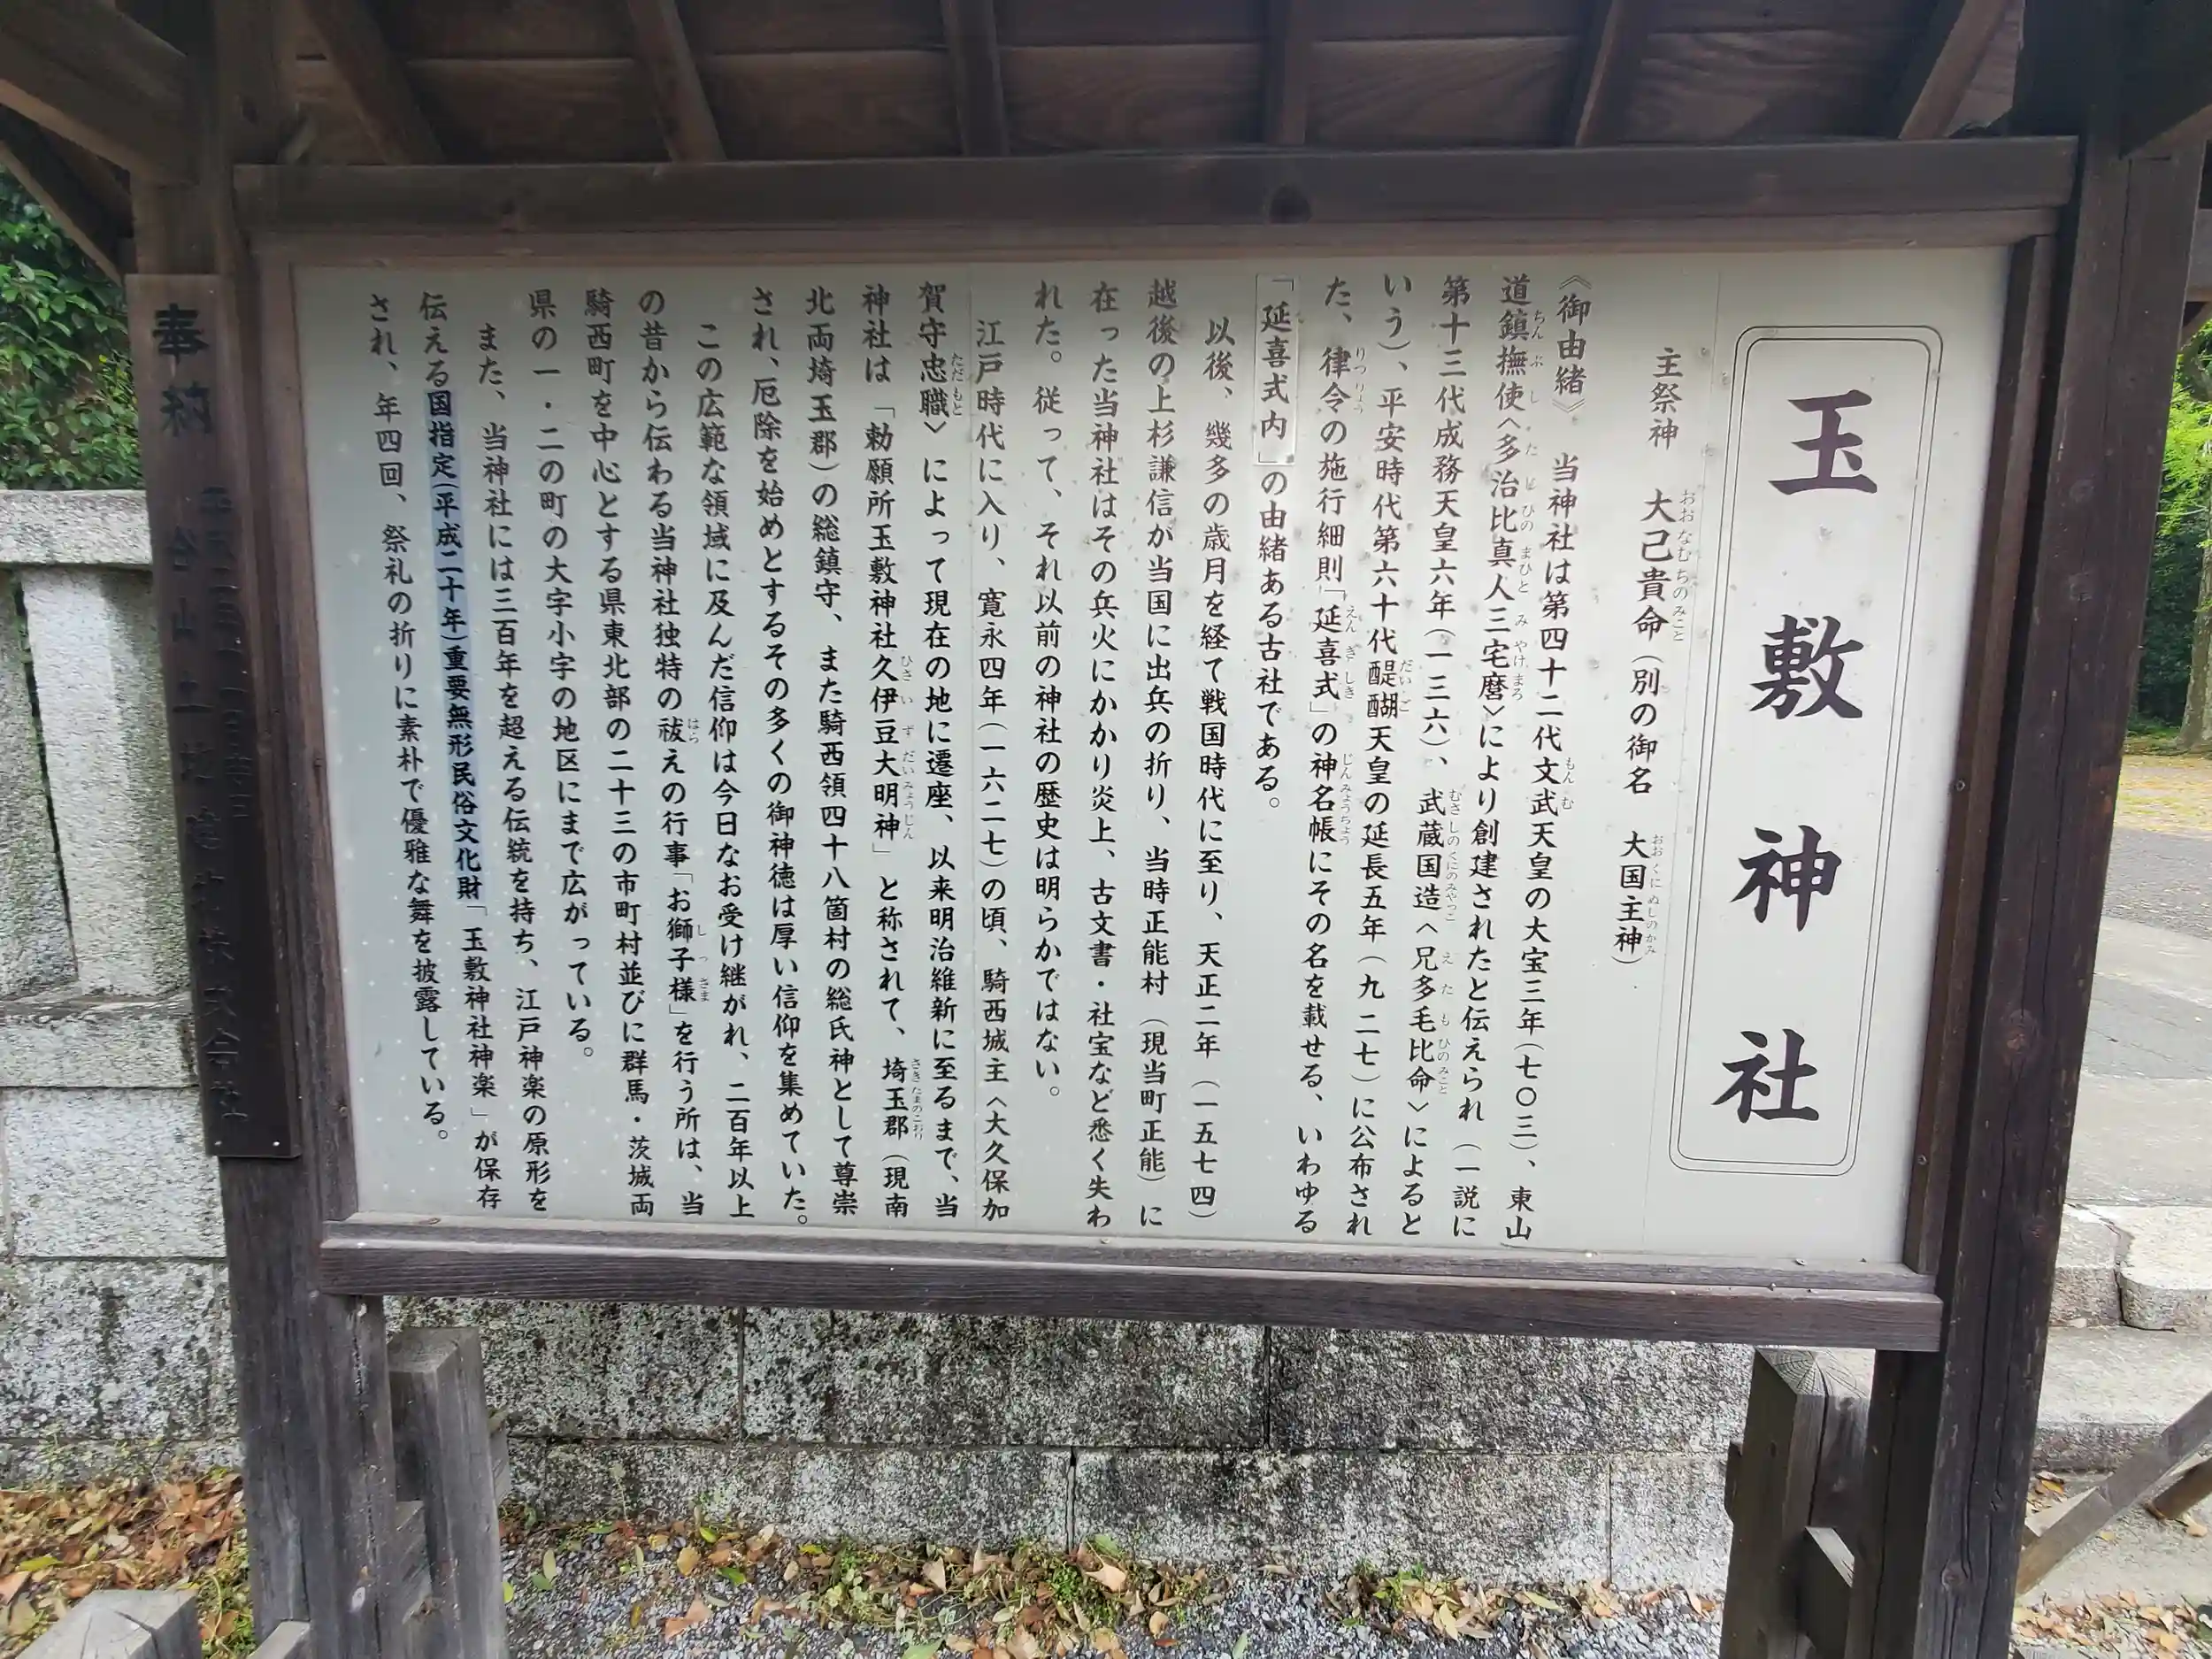 玉敷神社
主祭神　大己貴命（別の御名　大国主神）
おおなむちのみこと
おおくにぬしのかみ
《御由緒》　当神社は第四十二代文武天皇の大宝三年（七〇三）、東山
もんむ
道鎮撫使〈多治比真人三宅麿〉により創建されたと伝えられ（一説に
ちんぶし　たじひのまひとみやけまろ
第十三代成務天皇六年（一三六）、武蔵国造〈兄多毛比命〉によると
むさしのくにのみやつこ　えたもひのみこと
いう）、平安時代第六十代醍醐天皇の延長五年（九二七）に公布され
だいご
た、律令の施行細則「延喜式」の神名帳にその名を載せる、いわゆる
りつりょう　えんぎしき　じんみょうちょう
「延喜式内」の由緒ある古社である。
以後、幾多の歳月を経て戦国時代に至り、天正二年（一五七四）
越後の上杉謙信が当国に出兵の折り、当時正能村（現当町正能）に
在った当神社はその兵火にかかり炎上、古文書・社宝など悉く失わ
れた。従って、それ以前の神社の歴史は明らかではない。
江戸時代に入り、寛永四年（一六二七）の頃、騎西城主〈大久保加
賀守忠職〉によって現在の地に遷座、以来明治維新に至るまで、当
ただもと
神社は「勅願所玉敷神社久伊豆大明神」と称されて、埼玉郡（現南
ひさいずだいみょうじん　さきたまのこおり
北両埼玉郡）の総鎮守、また騎西領四十八箇村の総氏神として尊崇
され、厄除を始めとするその多くの御神徳は厚い信仰を集めていた。
この広範な領域に及んだ信仰は今日なお受け継がれ、二百年以上
の昔から伝わる当神社独特の祓えの行事「お獅子様」を行う所は、当
はら　しっさま
騎西町を中心とする県東北部の二十三の市町村並びに群馬・茨城両
県の一・二の町の大字小字の地区にまで広がっている。
また、当神社には三百年を超える伝統を持ち、江戸神楽の原形を
伝える国指定（平成二十年）重要無形民俗文化財「玉敷神社神楽」が保存
され、年四回、祭礼の折りに素朴で優雅な舞を披露している。
奉納